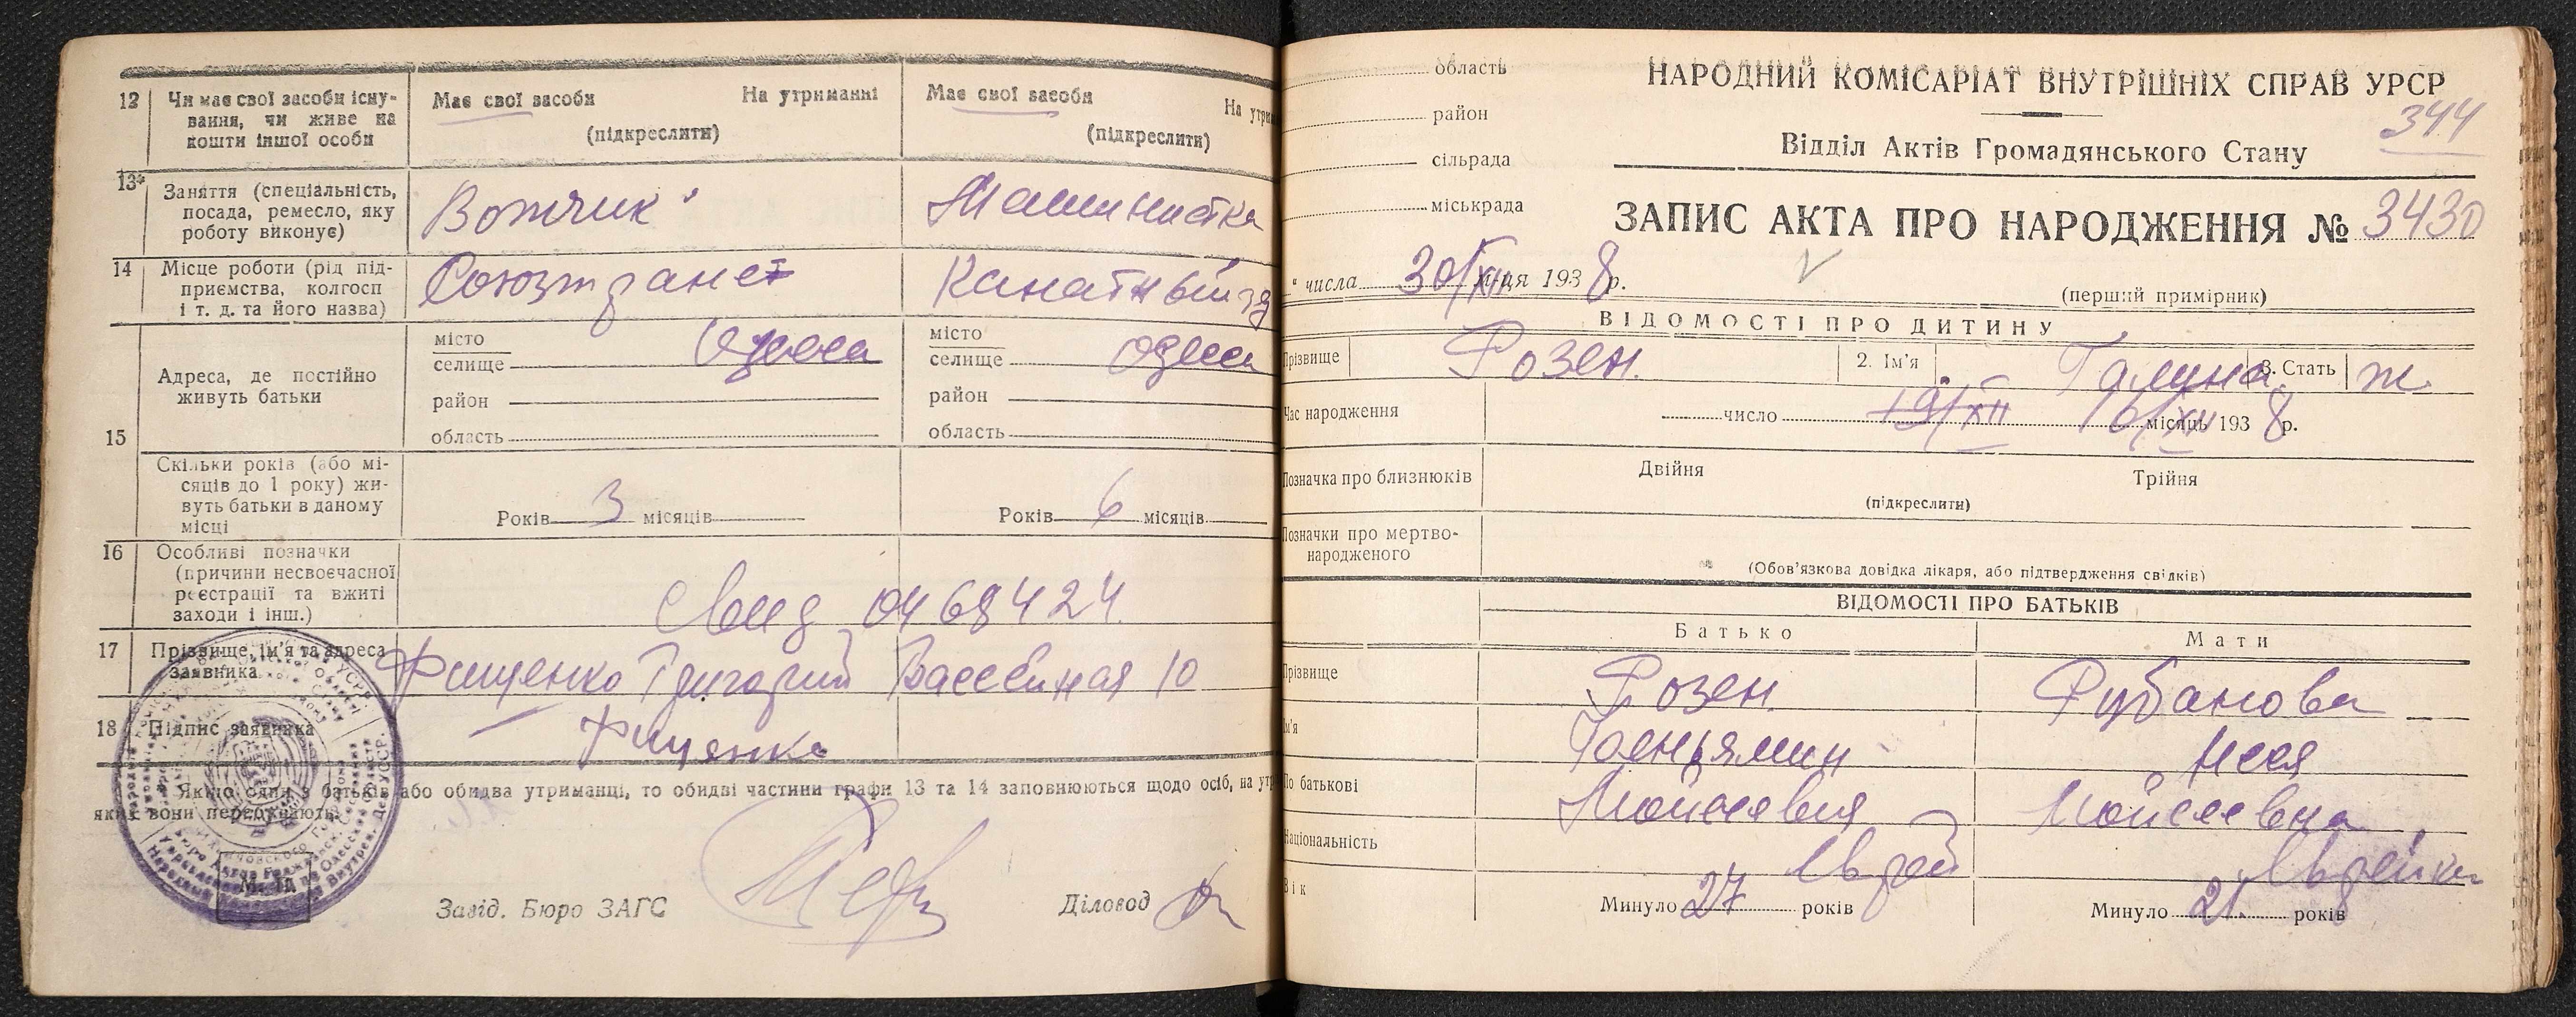 12 Чи має свої засоби існу-
вання, чи живе на
кошти іншої особи
Має свої засоби На утриманні
(підкреслити)
Має свої засоби На утрим
(підкреслити)
13* Заняття (спеціальність,
посада, ремесло, яку
роботу виконує)
Возчик
Машинистка
14 Місце роботи (рід під-
приємства, колгосп
і т. д. та його назва)
Союзтранс
Канатный
15 Адреса, де постійно
живуть батьки
місто
селище Одесса
район
область
місто
селище Одесса
район
область
Скільки років (або мі-
сяців до 1 року) жи-
вуть батьки в даному
місці
Років 3 місяців
Років 6 місяців
16 Особливі позначки
(причини несвоєчасної
реєстрації та вжиті
заходи і інш.)
Свид 0468424
17 Прізвище, ім'я та адреса
заявника
Фищенко Григорий Бассейная 10
18 Підпис заявника
Фищенко
Якщо один з батьків або обидва утриманці, то обидві частини графи 13 та 14 заповнюються щодо осіб, на утр
яких вони перебувають.
М. П.
Завід. Бюро ЗАГС
Діловод
область
район
сільрада
міськрада
НАРОДНИЙ КОМІСАРІАТ ВНУТРІШНІХ СПРАВ УРСР
344
Відділ Актів Громадянського Стану
ЗАПИС АКТА ПРО НАРОДЖЕННЯ № 3430
" числа 30/XII м-ця 1938 р.
(перший примірник)
ВІДОМОСТІ ПРО ДИТИНУ
Прізвище Розен 2. Ім'я Галина 3. Стать ж
Час народження число 19/XII 16/XII місяць 1938 р.
Позначка про близнюків Двійня Трійня
(підкреслити)
Позначки про мертво-
народженого
(Обов'язкова довідка лікаря, або підтвердження свідків)
ВІДОМОСТІ ПРО БАТЬКІВ
Батько Мати
Прізвище Розен Рубанова
Ім'я Беньямин Неся
По батькові Мойсеевич Мойсеевна
Національність Еврей Еврейка
Вік Минуло 27 років Минуло 21 років